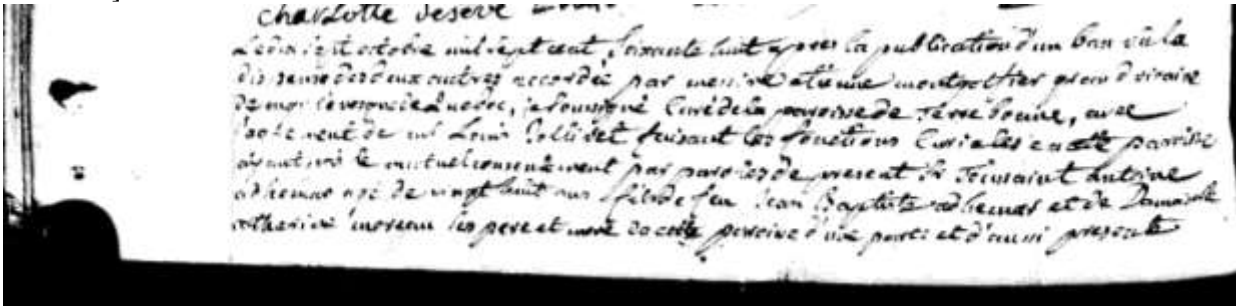 charlotte deseve
Le dix sept octobre mil sept cent soixante huit apres la publication d'un ban vù la
dispense des deux autres accordée par messire etienne montgolfier grand vicaire
de monseigneur de Quebec, je soussigné Curé de la paroisse de Terrebonne, avec
l'agrement de mr Louis Collivet faisant les fonctions Curiales en cette paroisse
ayant pris le mutuel consentement par paroles de present de Toussaint antoine
adhemar agé de vingt huit ans fils de feu Jean Baptiste adhemar et de Damoiselle
catherine moreau les pere et mere de cette paroisse d'une part et d'aussi presente